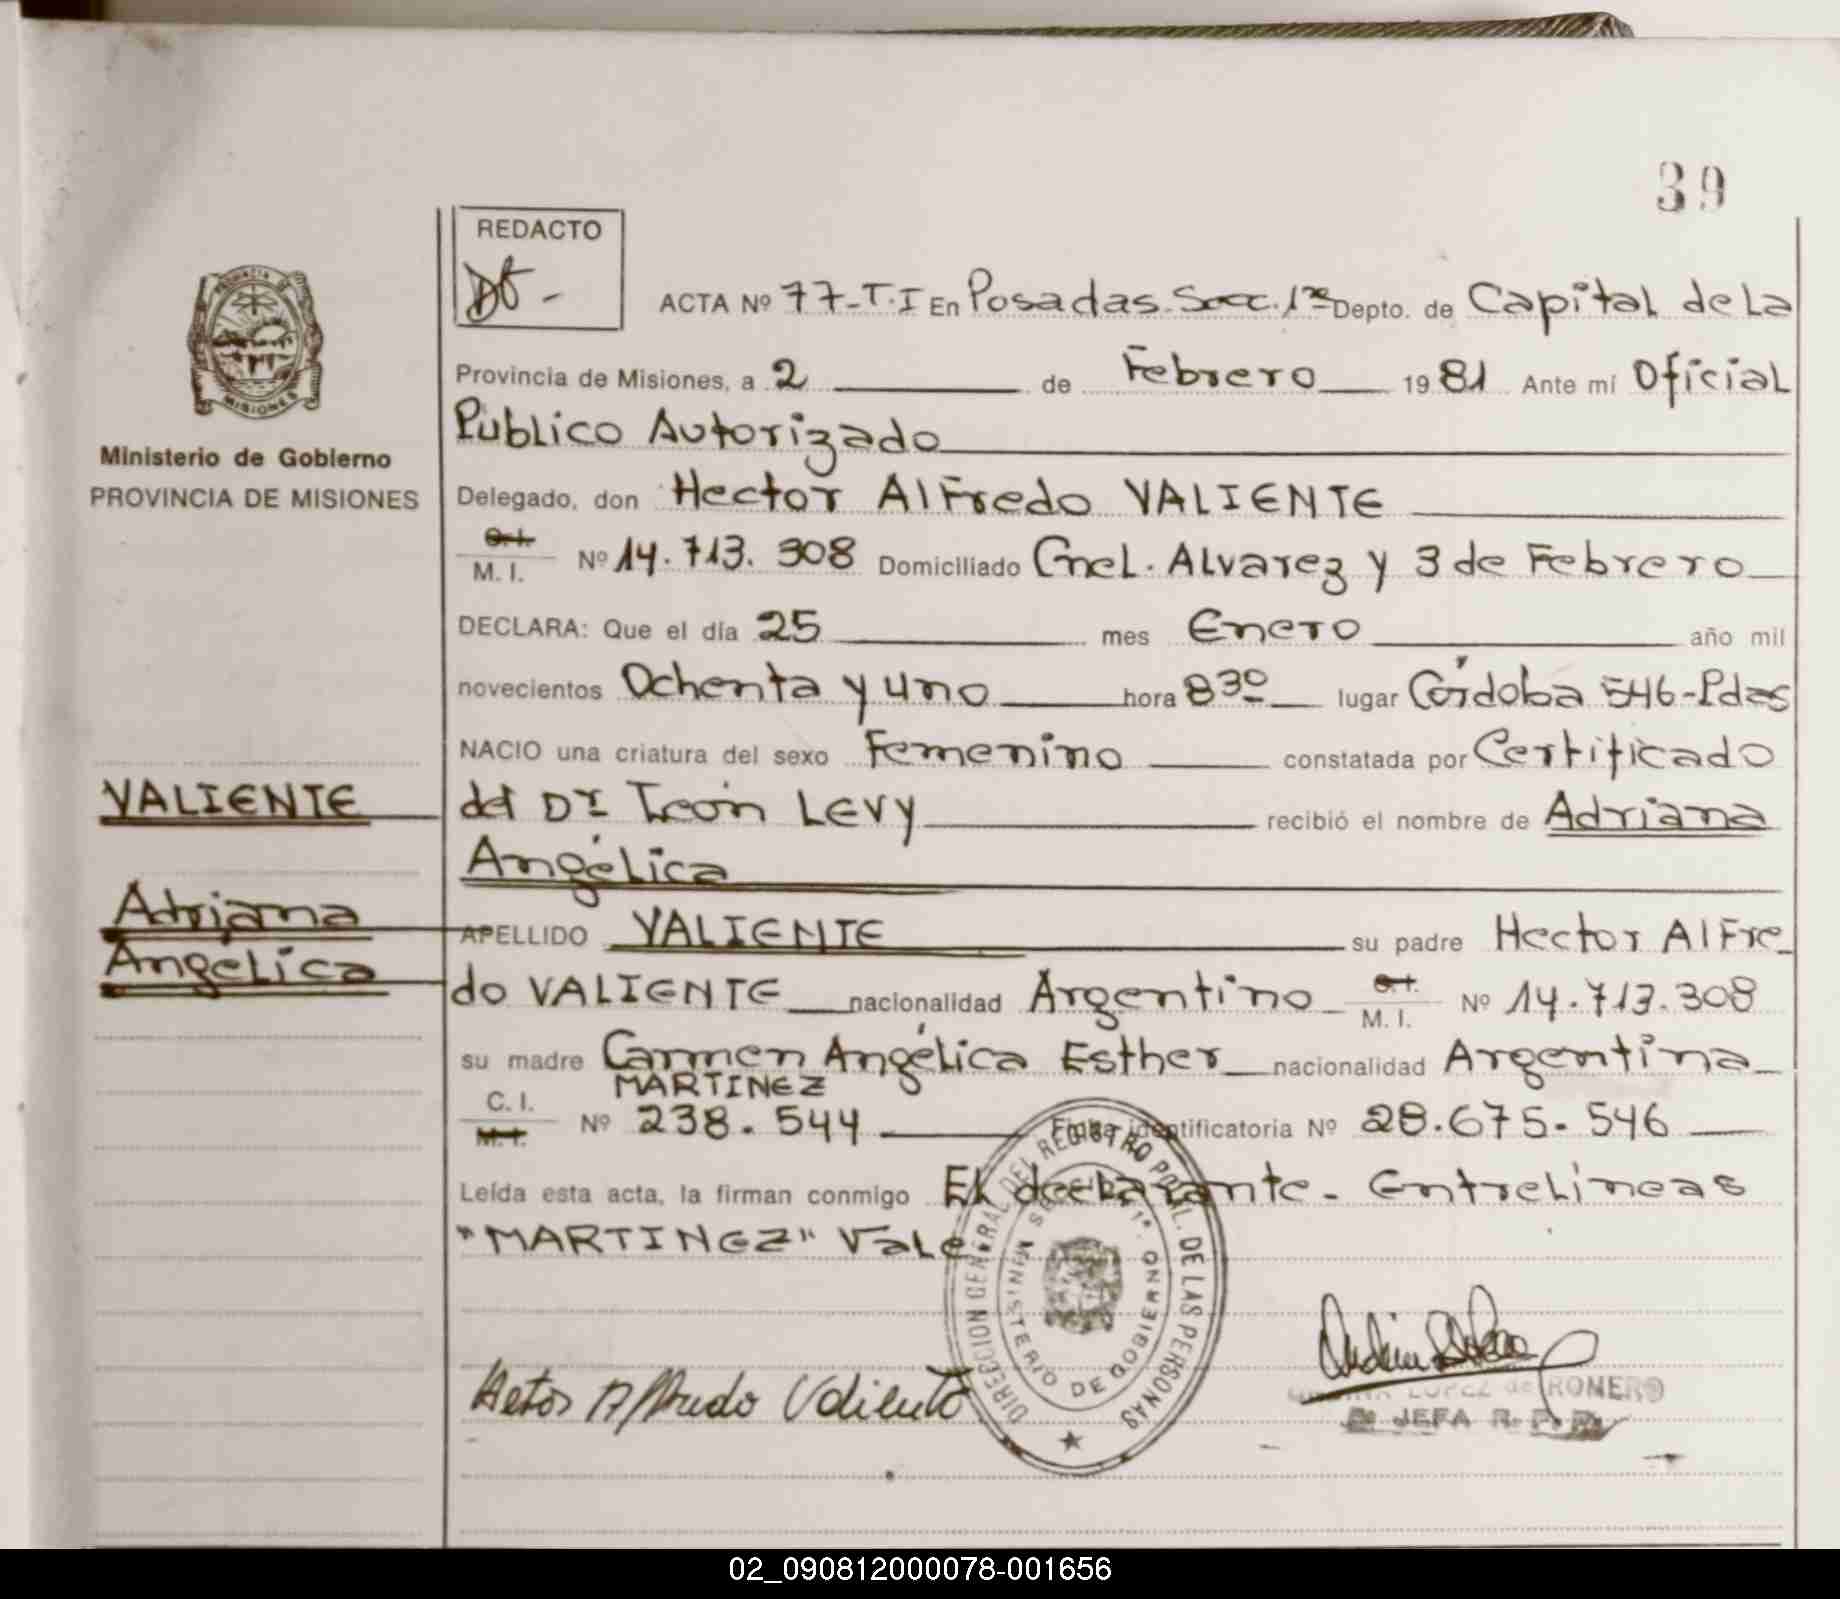 39
REDACTO
ACTA Nº 77-T.I En Posadas. Secc. 1ra Depto. de Capital de La
Provincia de Misiones, a 2 de Febrero 1981 Ante mí Oficial
Público Autorizado
Delegado, don Hector Alfredo VALIENTE
C.I. M.I. Nº 14.713.308 Domiciliado Cnel. Alvarez y 3 de Febrero
DECLARA: Que el día 25 mes Enero año mil
novecientos Ochenta y uno hora 830 lugar Córdoba 546-Pdas
NACIO una criatura del sexo Femenino constatada por Certificado
del Dr. León LEVY recibió el nombre de Adriana
Angélica
APELLIDO VALIENTE su padre Hector Alfre
do VALIENTE nacionalidad Argentino C.I. M.I. Nº 14.713.308
su madre Carmen Angélica Esther nacionalidad Argentina
MARTINEZ
C.I. M.I. Nº 238.544 Ficha identificatoria Nº 28.675.546
Leída esta acta, la firman conmigo El declarante - Entrelineas
"MARTINEZ" Vale
Hetor Alfredo Valiente
LOPEZ de ROMERO
JEFA R.P.P.
DIRECCION GENERAL DEL REGISTRO PCIAL. DE LAS PERSONAS
MINISTERIO DE GOBIERNO
PROVINCIA DE
MISIONES
Ministerio de Gobierno
PROVINCIA DE MISIONES
VALIENTE
Adriana
Angélica
02_090812000078-001656